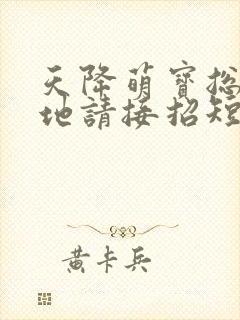 天降萌寶总
地請接招短
黄卡兵